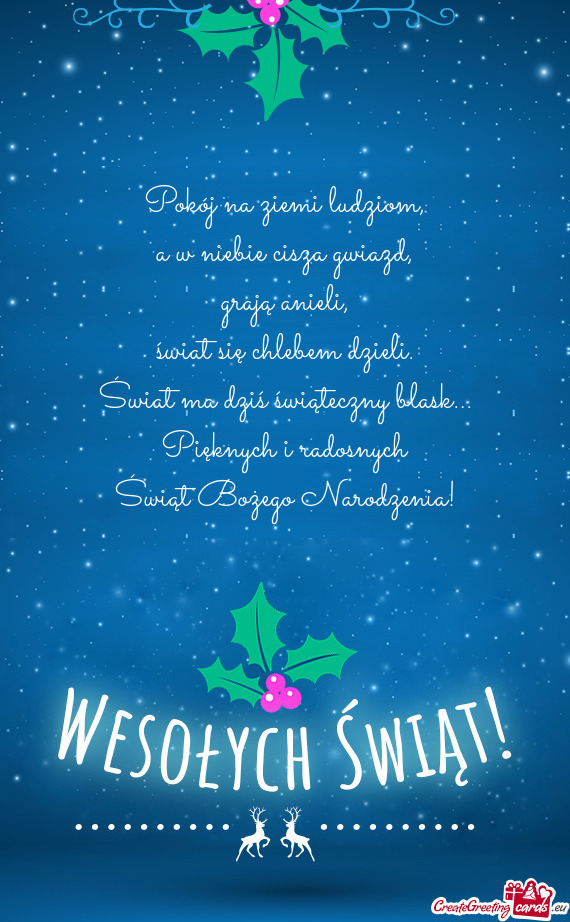 Pokój na ziemi ludziom,
a w niebie cisza gwiazd,
grają anieli,
świat się chlebem dzieli.
Świat ma dziś świąteczny blask...
Pięknych i radosnych
Świąt Bożego Narodzenia!
Wesołych Świąt!
CreateGreetingcards.eu